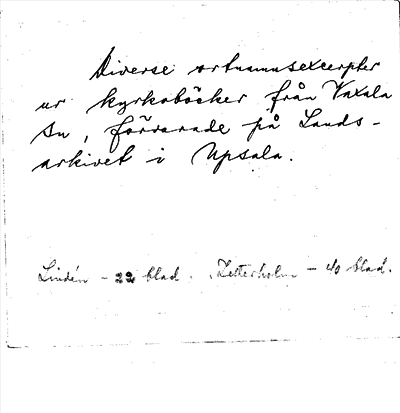 Diverse ortnamnsexcerpter
ur kyrkoböcker från Vaxala
sn, förvarade på Lands-
arkivet i Upsala.
Lindén - 22 blad. Zetterholm - 40 blad.